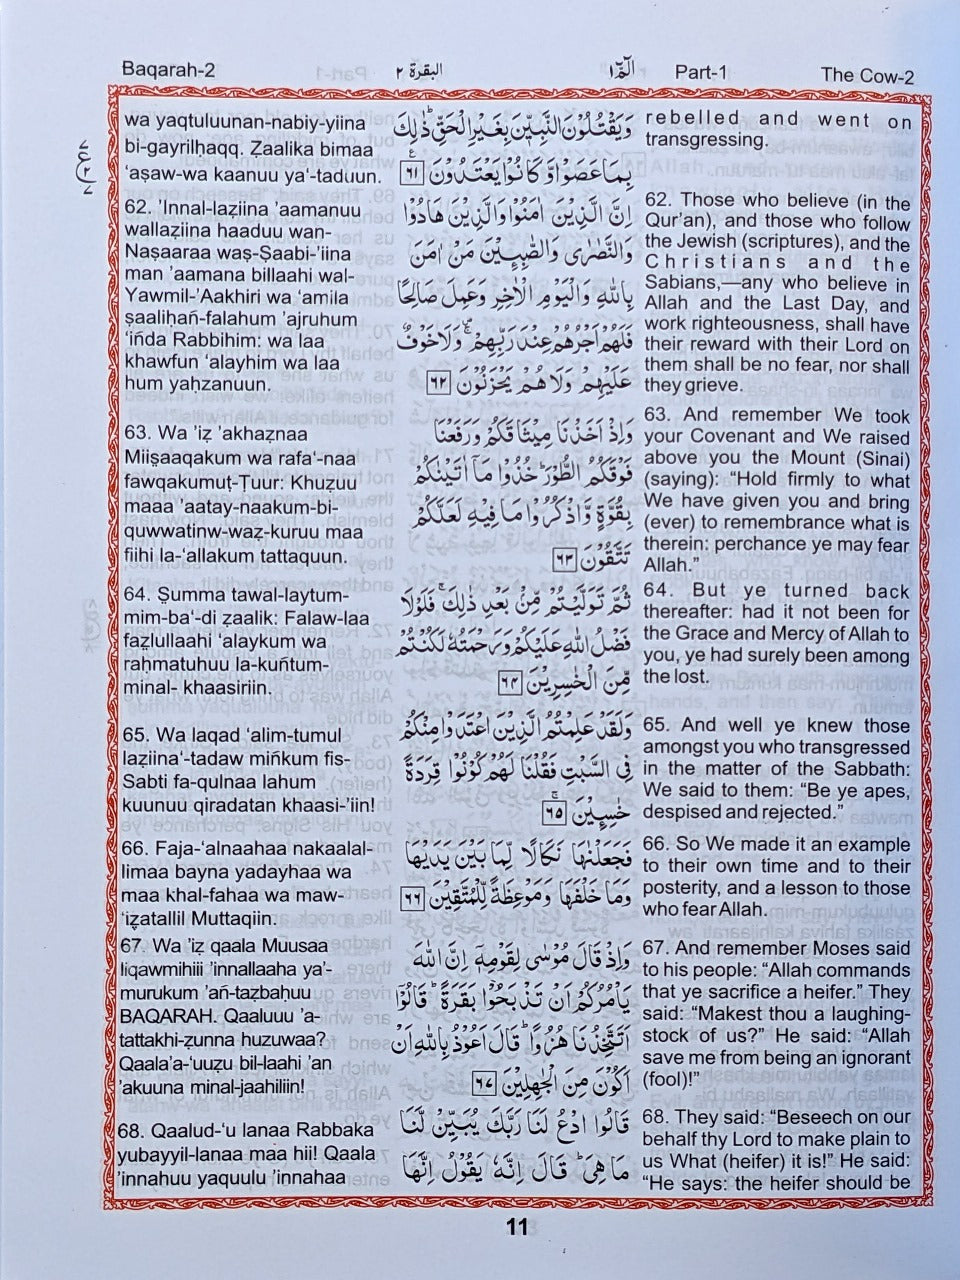 Baqarah-2
البقرة ٢
الٓمّٓ ١
Part-1
The Cow-2
wa yaqtuluunan-nabiy-yiina
bi-gayrilḥaqq. Ẓaalika bimaa
‘aṣaw-wa kaanuu ya‘-taduun.
62. ’Innal-laẓiina ’aamanuu
wallaẓiina haaduu wan-
Naṣaaraa waṣ-Ṣaabi-’iina
man ’aamana billaahi wal-
Yawmil-’Aakhiri wa ‘amila
ṣaaliḥañ-falahum ’ajruhum
‘iñda Rabbihim: wa laa
khawfun ‘alayhim wa laa
hum yahzanuun.
63. Wa ’iẓ ’akhaẓnaa
Miiṣaaqakum wa rafa‘-naa
fawqakumuṭ-Ṭuur: Khuẓuu
maaa ’aatay-naakum-bi-
quwwatinw-waẓ-kuruu maa
fiihi la-‘allakum tattaquun.
64. Ṣumma tawal-laytum-
mim-ba‘-di ẓaalik: Falaw-laa
faẓlullaahi ‘alaykum wa
raḥmatuhuu la-kuñtum-
minal- khaasiriin.
65. Wa laqad ‘alim-tumul
laẓiina‘-tadaw miñkum fis-
Sabti fa-qulnaa lahum
kuunuu qiradatan khaasi-’iin!
66. Faja-‘alnaahaa nakaalal-
limaa bayna yadayhaa wa
maa khal-fahaa wa maw-
‘iẓatallil Muttaqiin.
67. Wa ’iẓ qaala Muusaa
liqawmihiii ’innallaaha ya’-
murukum ’añ-taẓbaḥuu
BAQARAH. Qaaluuu ’a-
tattakhi-ẓunna huzuwaa?
Qaala’a-‘uuẓu bil-laahi ’an
’akuuna minal-jaahiliin!
68. Qaalud-‘u lanaa Rabbaka
yubayyil-lanaa maa hii! Qaala
’innahuu yaquulu ’innahaa
وَيَقْتُلُوْنَ النَّبِيّٖنَ بِغَيْرِ الْحَقِّ ؕ ذٰلِكَ
بِمَا عَصَوْا وَّكَانُوْا يَعْتَدُوْنَ ٦١
اِنَّ الَّذِيْنَ اٰمَنُوْا وَالَّذِيْنَ هَادُوْا
وَالنَّصٰرٰى وَالصّٰبِـِٕيْنَ مَنْ اٰمَنَ
بِاللّٰهِ وَالْيَوْمِ الْاٰخِرِ وَعَمِلَ صَالِحًا
فَلَهُمْ اَجْرُهُمْ عِنْدَ رَبِّهِمْ ۚ وَلَا خَوْفٌ
عَلَيْهِمْ وَلَا هُمْ يَحْزَنُوْنَ ٦٢
وَاِذْ اَخَذْنَا مِيْثَاقَكُمْ وَرَفَعْنَا
فَوْقَكُمُ الطُّوْرَ ؕ خُذُوْا مَاۤ اٰتَيْنٰكُمْ
بِقُوَّةٍ وَّاذْكُرُوْا مَا فِيْهِ لَعَلَّكُمْ
تَتَّقُوْنَ ٦٣
ثُمَّ تَوَلَّيْتُمْ مِّنْ بَعْدِ ذٰلِكَ ۚ فَلَوْلَا
فَضْلُ اللّٰهِ عَلَيْكُمْ وَرَحْمَتُهٗ لَكُنْتُمْ
مِّنَ الْخٰسِرِيْنَ ٦٤
وَلَقَدْ عَلِمْتُمُ الَّذِيْنَ اعْتَدَوْا مِنْكُمْ
فِى السَّبْتِ فَقُلْنَا لَهُمْ كُوْنُوْا قِرَدَةً
خٰسِـِٕيْنَ ٦٥
فَجَعَلْنٰهَا نَكَالًا لِّمَا بَيْنَ يَدَيْهَا
وَمَا خَلْفَهَا وَمَوْعِظَةً لِّلْمُتَّقِيْنَ ٦٦
وَاِذْ قَالَ مُوْسٰى لِقَوْمِهٖۤ اِنَّ اللّٰهَ
يَاْمُرُكُمْ اَنْ تَذْبَحُوْا بَقَرَةً ؕ قَالُوْۤا
اَتَتَّخِذُنَا هُزُوًا ؕ قَالَ اَعُوْذُ بِاللّٰهِ اَنْ
اَكُوْنَ مِنَ الْجٰهِلِيْنَ ٦٧
قَالُوا ادْعُ لَنَا رَبَّكَ يُبَيِّنْ لَّنَا
مَا هِىَ ؕ قَالَ اِنَّهٗ يَقُوْلُ اِنَّهَا
rebelled and went on
transgressing.
62. Those who believe (in the
Qur’an), and those who follow
the Jewish (scriptures), and the
Christians and the
Sabians,—any who believe in
Allah and the Last Day, and
work righteousness, shall have
their reward with their Lord on
them shall be no fear, nor shall
they grieve.
63. And remember We took
your Covenant and We raised
above you the Mount (Sinai)
(saying): “Hold firmly to what
We have given you and bring
(ever) to remembrance what is
therein: perchance ye may fear
Allah.”
64. But ye turned back
thereafter: had it not been for
the Grace and Mercy of Allah to
you, ye had surely been among
the lost.
65. And well ye knew those
amongst you who transgressed
in the matter of the Sabbath:
We said to them: “Be ye apes,
despised and rejected.”
66. So We made it an example
to their own time and to their
posterity, and a lesson to those
who fear Allah.
67. And remember Moses said
to his people: “Allah commands
that ye sacrifice a heifer.” They
said: “Makest thou a laughing-
stock of us?” He said: “Allah
save me from being an ignorant
(fool)!”
68. They said: “Beseech on our
behalf thy Lord to make plain to
us What (heifer) it is!” He said:
“He says: the heifer should be
11